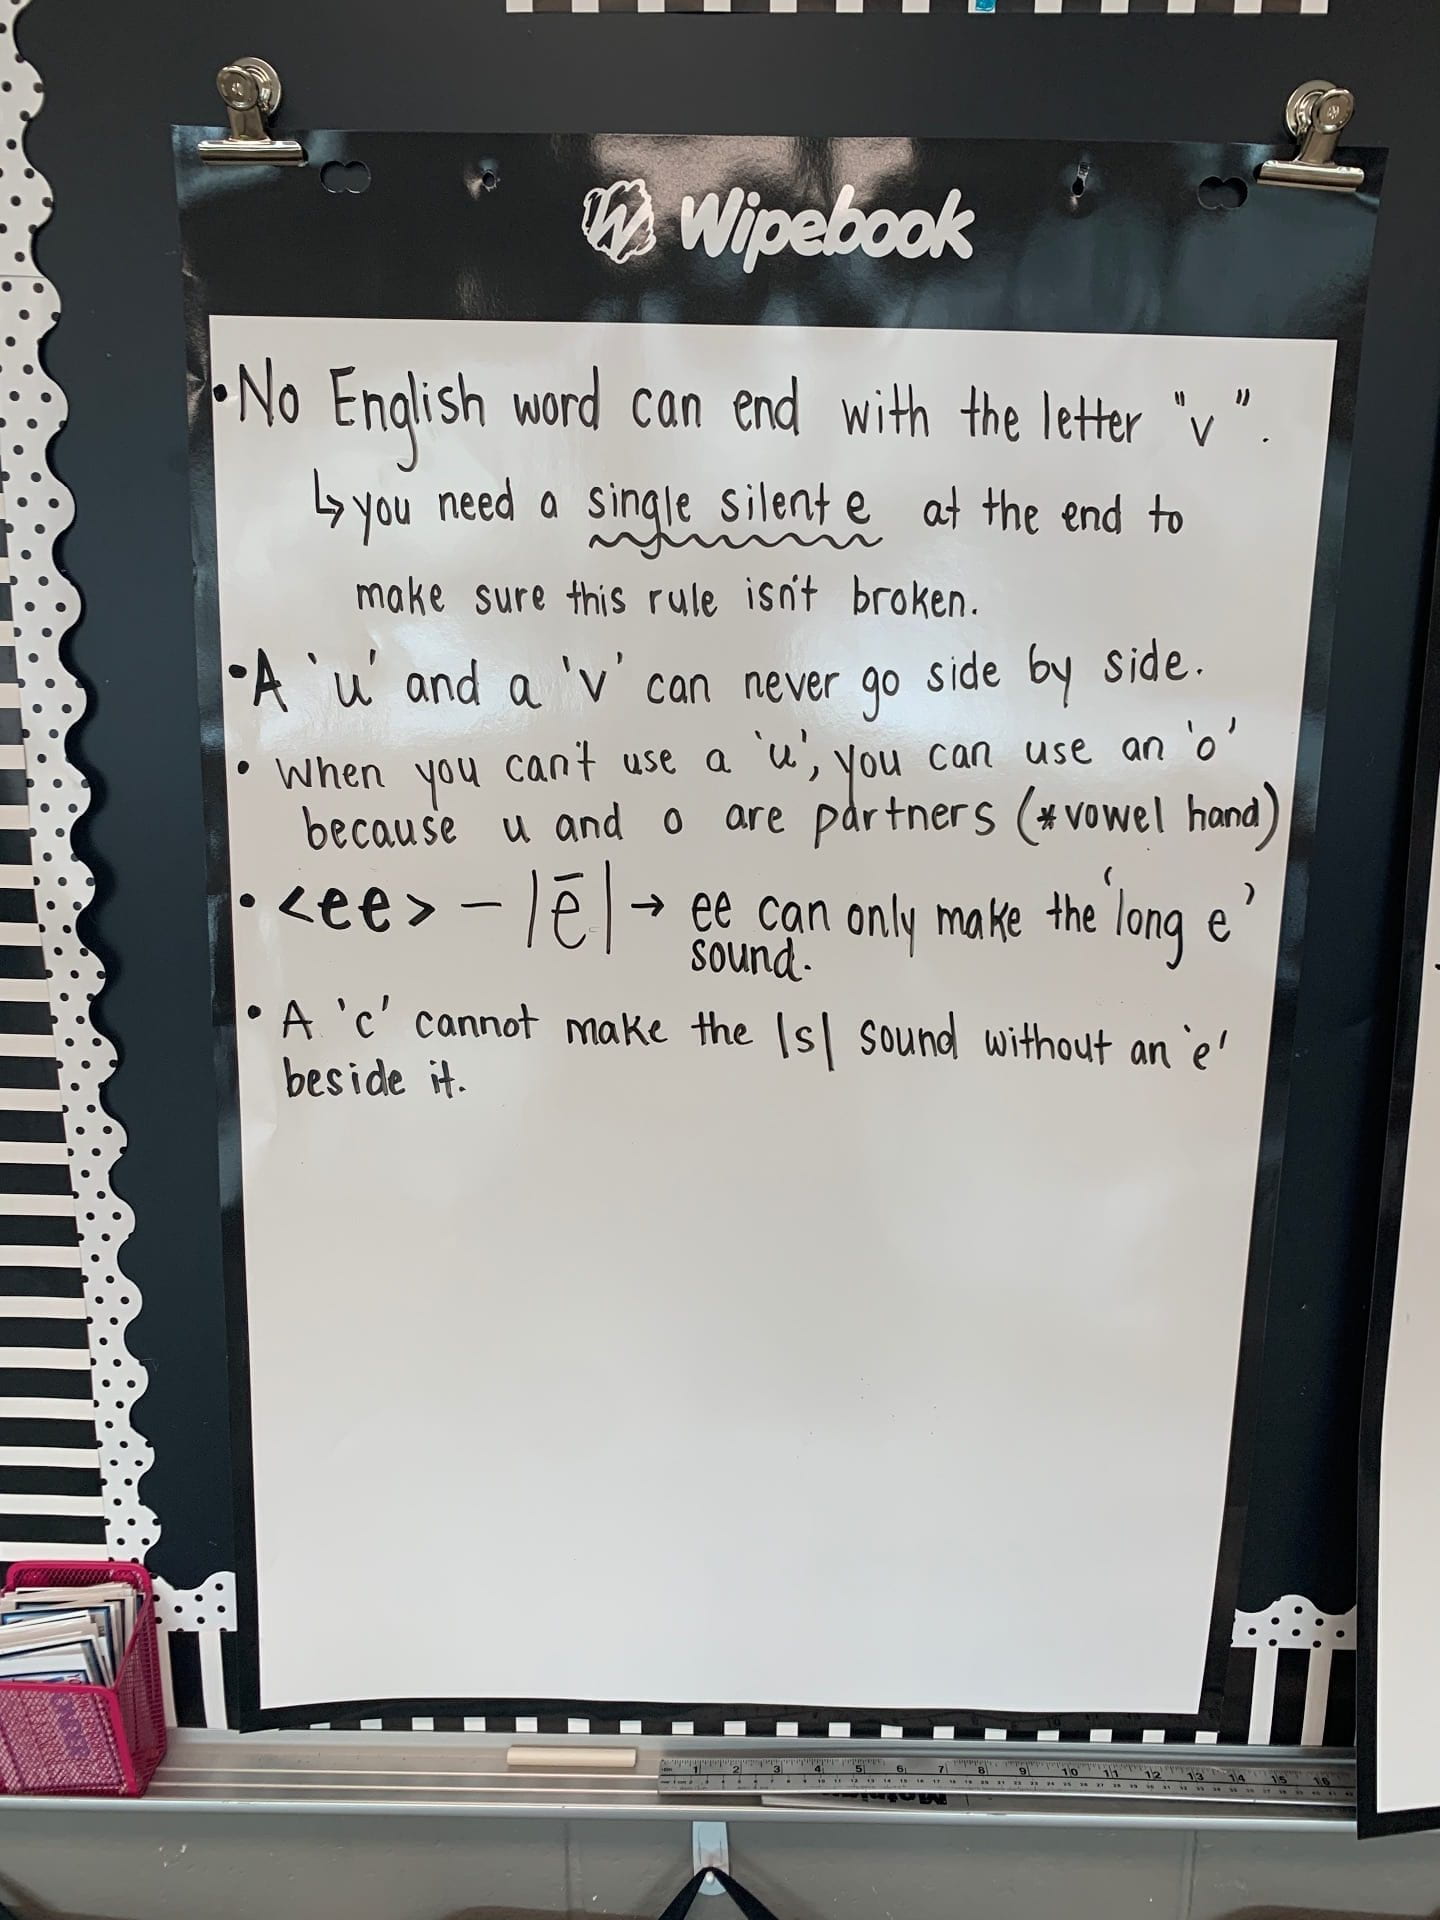 Wipebook
•No English word can end with the letter "v".
↳ you need a single silent e at the end to
make sure this rule isn't broken.
•A 'u' and a 'v' can never go side by side.
• When you can't use a 'u', you can use an 'o'
because u and o are partners (*vowel hand)
• <ee> – |ē| → ee can only make the 'long e'
sound.
• A 'c' cannot make the |s| sound without an 'e'
beside it.
1 2 3 4 5 6 7 8 9 10 11 12 13 14 15 16